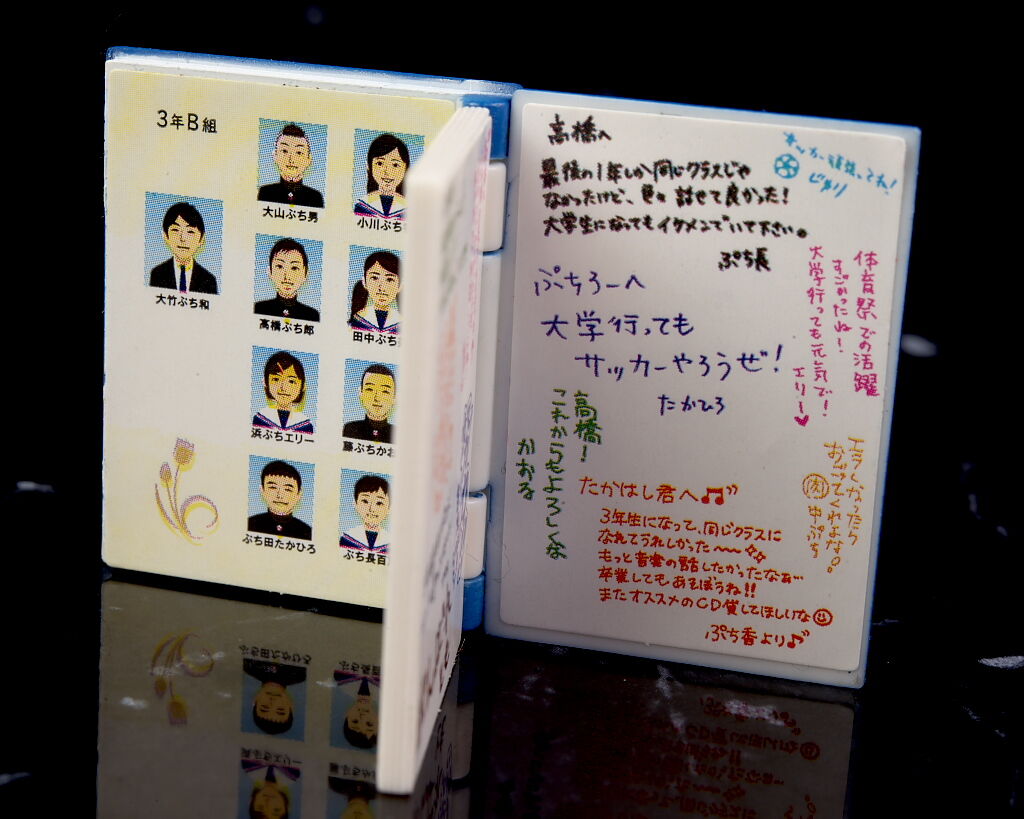 3年B組
大竹ぷち和
大山ぷち男
小川ぷち
高橋ぷち郎
田中ぷち
浜ぷちエリー
藤ぷちかお
ぷち田たかひろ
ぷち長百
高橋へ
最後の1年しか同じクラスじゃ
なかったけど、色々話せて良かった!
大学生になってもイケメンでいて下さい。
ぷち長
サッカー頑張ってね!
じゅり
ぷちろーへ
大学行っても
サッカーやろうぜ!
たかひろ
体育祭での活躍
すごかったね!
大学行っても元気で!
エリー♥
高橋!
これからもよろしくな
かおる
エラくなったら
おごってくれよな!
中ぷち
たかはし君へ♫
3年生になって、同じクラスに
なれてうれしかった〜〜
もっと音楽の話したかったなぁ
卒業してもあそぼうね!!
またオススメのCD貸してほしいな☺
ぷち香より♪